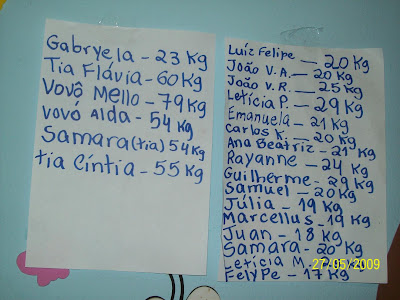 Gabryela - 23 Kg
Tia Flávia - 60 Kg
Vovô Mello - 79 Kg
vovó Alda - 54 Kg
Samara (tia) 54 Kg
tia Cíntia - 55 Kg
Luíz Felipe — 20 Kg
João V. A. - 20 Kg
João V. R. - 25 Kg
Letícia P. - 29 Kg
Emanuela - 21 Kg
Carlos K. - 20 Kg
Ana Beatriz - 21 Kg
Rayanne - 24 Kg
Guilherme - 29 Kg
Samuel - 20 Kg
Júlia - 19 Kg
Marcellus - 19 Kg
Juan - 18 Kg
Samara - 20 Kg
Letícia M.
Felype - 17 Kg
27/05/2009